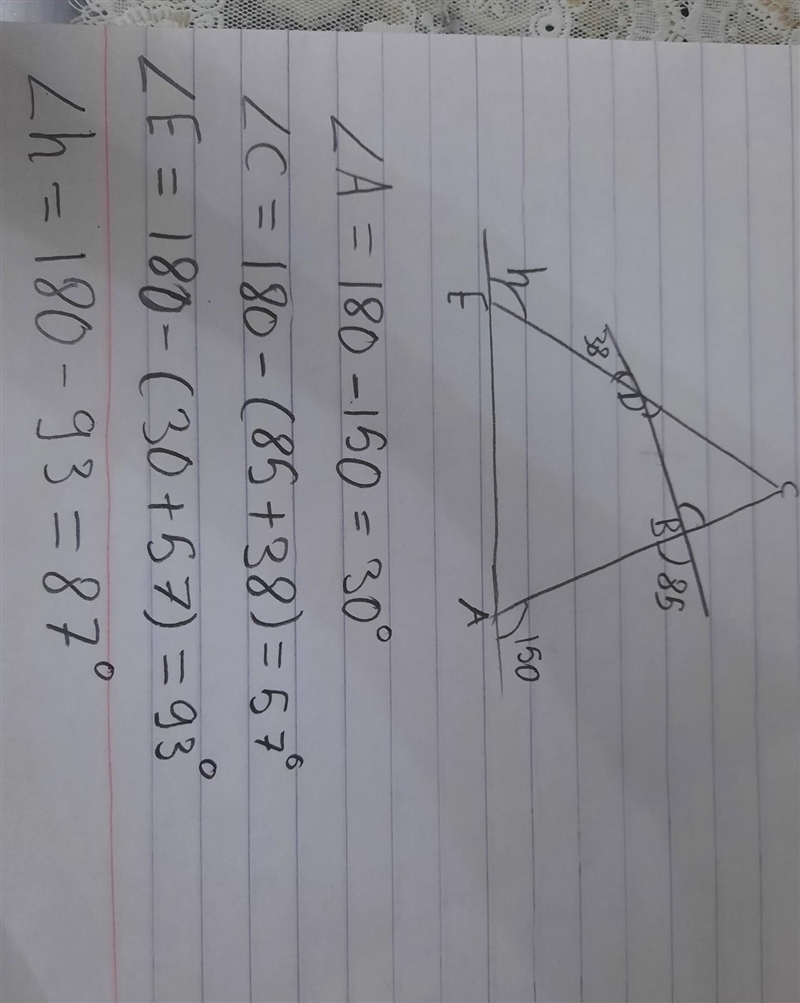 C
B 85
D
38
h
E
A 150
∠A = 180 - 150 = 30°
∠C = 180 - (85 + 38) = 57°
∠E = 180 - (30 + 57) = 93°
∠h = 180 - 93 = 87°